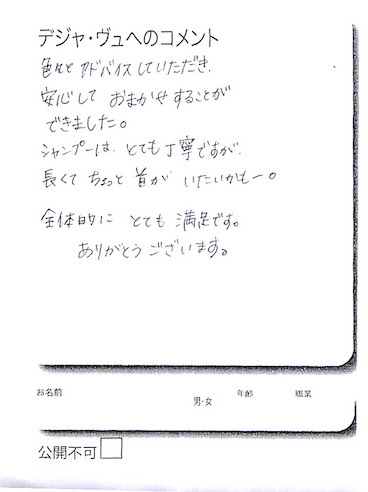 デジャ・ヴュへのコメント
色々と アドバイスしていただき、
安心して おまかせすることが
できました。
シャンプーは、とても丁寧ですが、
長くて ちょっと 首が いたいかもー。
全体的に とても 満足です。
ありがとう ございます。
お名前 男・女 年齢 職業
公開不可